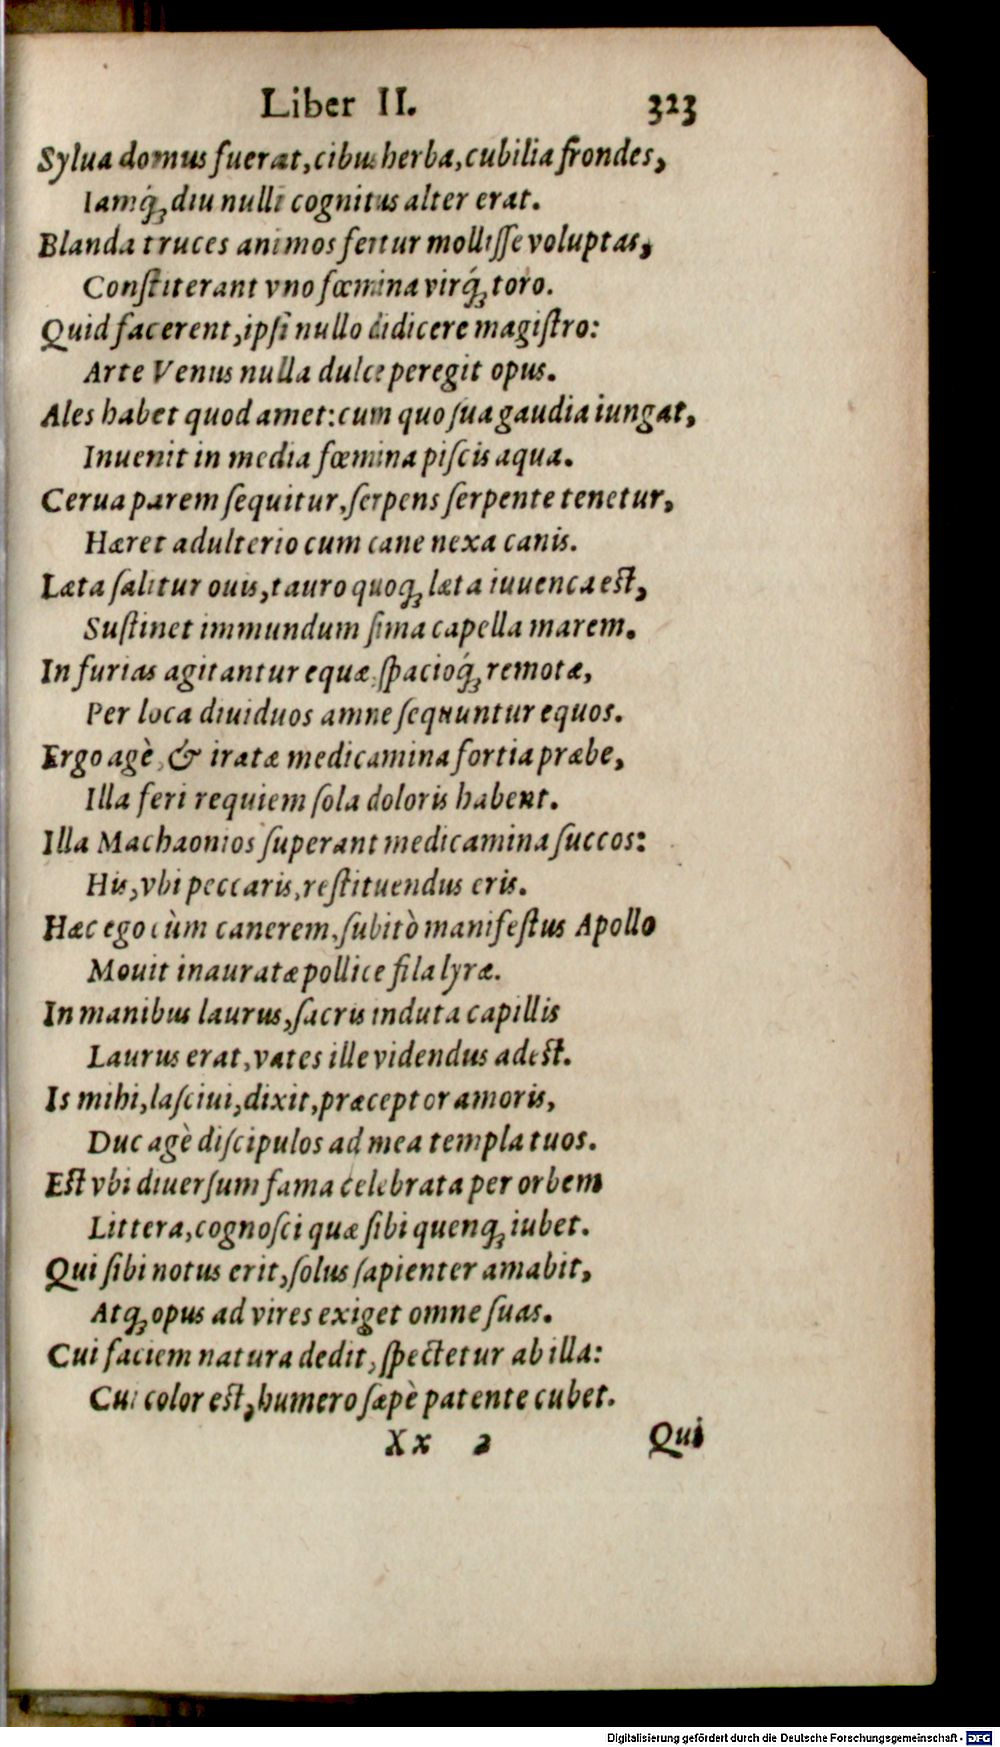 Liber II. 323
Sylua domus fuerat, cibus herba, cubilia frondes,
Iamq́; diu nulli cognitus alter erat.
Blanda truces animos fertur mollisse voluptas,
Constiterant vno fœmina virq́; toro.
Quid facerent, ipsi nullo didicere magistro:
Arte Venus nulla dulce peregit opus.
Ales habet quod amet: cum quo sua gaudia iungat,
Inuenit in media fœmina piscis aqua.
Cerua parem sequitur, serpens serpente tenetur,
Hæret adulterio cum cane nexa canis.
Læta salitur ouis, tauro quoq; læta iuuenca est,
Sustinet immundum sima capella marem.
In furias agitantur equæ, spacioq́; remotæ,
Per loca diuiduos amne sequuntur equos.
Ergo agè, & iratæ medicamina fortia præbe,
Illa feri requiem sola doloris habent.
Illa Machaonios superant medicamina succos:
His, vbi peccaris, restituendus eris.
Hæc ego cùm canerem, subitò manifestus Apollo
Mouit inauratæ pollice fila lyræ.
In manibus laurus, sacris induta capillis
Laurus erat, vates ille videndus adest.
Is mihi, lasciui, dixit, præceptor amoris,
Duc agè discipulos ad mea templa tuos.
Est vbi diuersum fama celebrata per orbem
Littera, cognosci quæ sibi quenq; iubet.
Qui sibi notus erit, solus sapienter amabit,
Atq; opus ad vires exiget omne suas.
Cui faciem natura dedit, spectetur ab illa:
Cui color est, humero sæpè patente cubet.
Xx 2 Qui
Digitalisierung gefördert durch die Deutsche Forschungsgemeinschaft - DFG